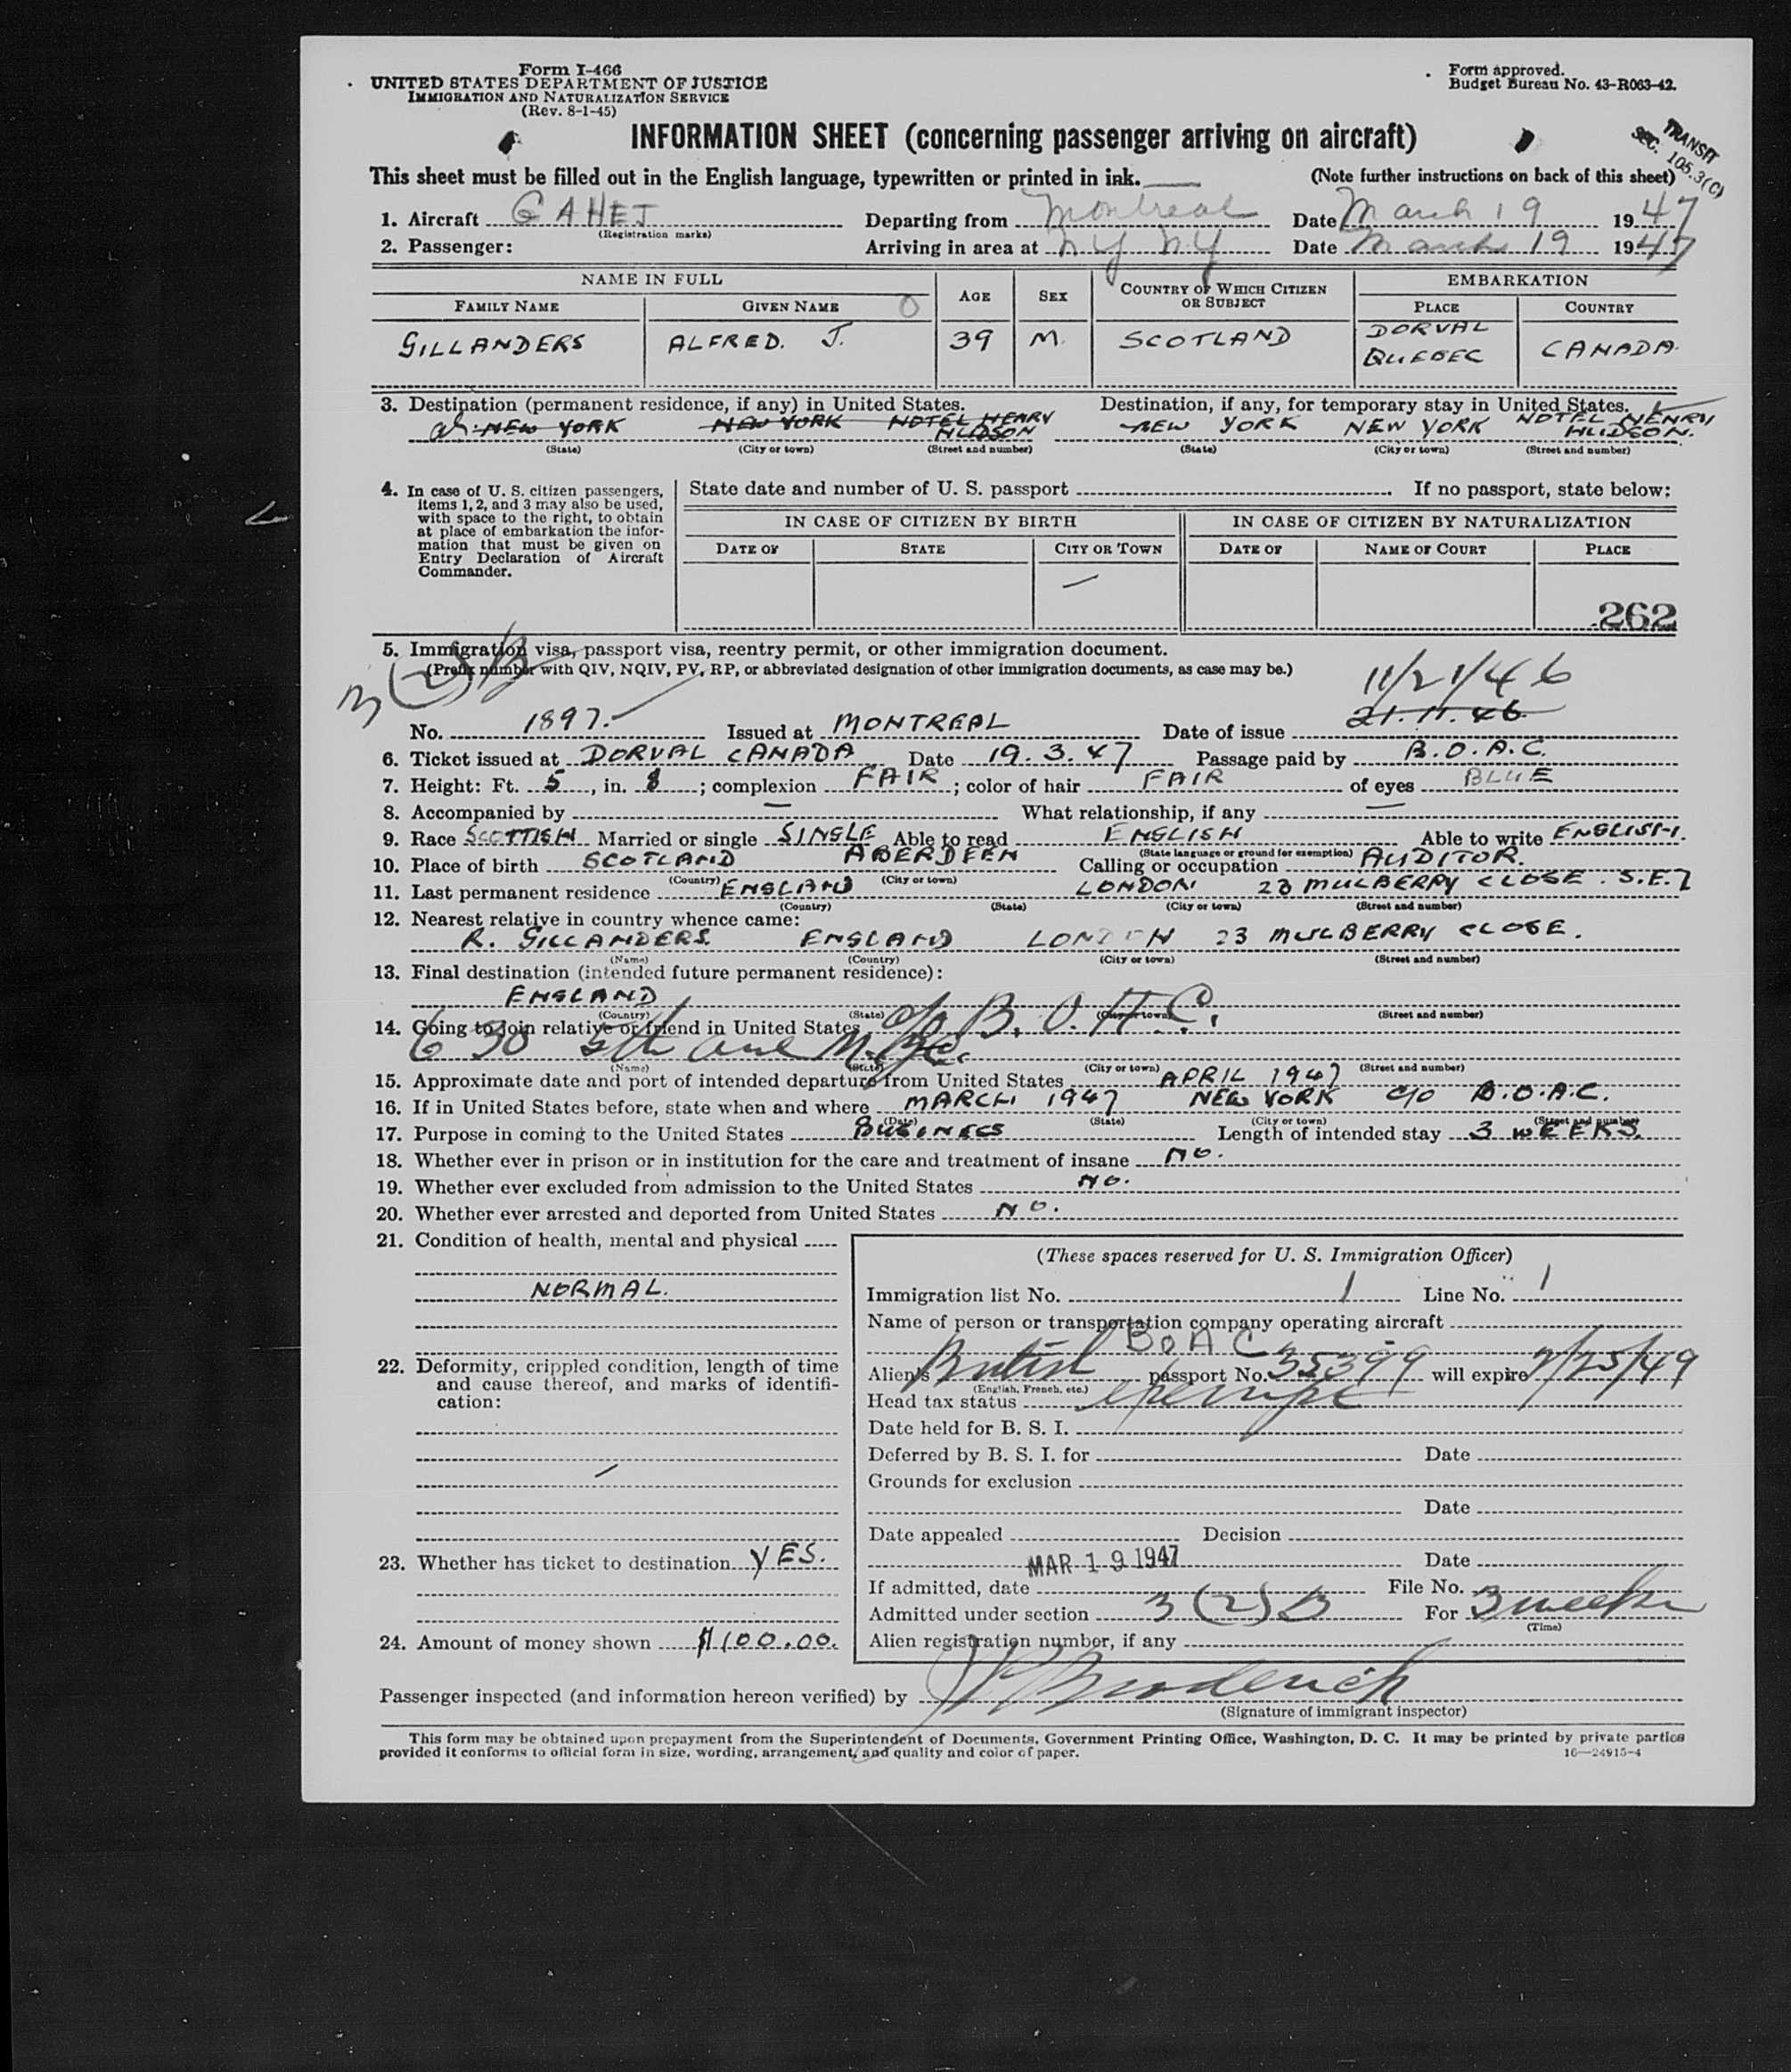 Form I-466
UNITED STATES DEPARTMENT OF JUSTICE
IMMIGRATION AND NATURALIZATION SERVICE
(Rev. 8-1-45)
Form approved.
Budget Bureau No. 43-R063-42.
INFORMATION SHEET (concerning passenger arriving on aircraft)
TRANSIT
SEC. 105.3(C)
This sheet must be filled out in the English language, typewritten or printed in ink. (Note further instructions on back of this sheet)
1. Aircraft G AHEJ Departing from Montreal Date March 19 1947
(Registration marks)
2. Passenger: Arriving in area at NY NY Date March 19 1947
NAME IN FULL AGE SEX COUNTRY OF WHICH CITIZEN OR SUBJECT EMBARKATION
FAMILY NAME GIVEN NAME PLACE COUNTRY
GILLANDERS ALFRED. J. 39 M. SCOTLAND DORVAL QUEBEC CANADA.
3. Destination (permanent residence, if any) in United States. Destination, if any, for temporary stay in United States.
NEW YORK NEW YORK HOTEL HENRY HUDSON NEW YORK NEW YORK HOTEL HENRY HUDSON.
(State) (City or town) (Street and number) (State) (City or town) (Street and number)
4. In case of U. S. citizen passengers, items 1, 2, and 3 may also be used, with space to the right, to obtain at place of embarkation the information that must be given on Entry Declaration of Aircraft Commander.
State date and number of U. S. passport If no passport, state below:
IN CASE OF CITIZEN BY BIRTH IN CASE OF CITIZEN BY NATURALIZATION
DATE OF STATE CITY OR TOWN DATE OF NAME OF COURT PLACE
262
5. Immigration visa, passport visa, reentry permit, or other immigration document.
(Prefix number with QIV, NQIV, PV, RP, or abbreviated designation of other immigration documents, as case may be.)
3(2)B
11/21/46
No. 1897. Issued at MONTREAL Date of issue 21.11.46
6. Ticket issued at DORVAL CANADA Date 19.3.47 Passage paid by B.O.A.C.
7. Height: Ft. 5, in. 8; complexion FAIR; color of hair FAIR of eyes BLUE
8. Accompanied by — What relationship, if any —
9. Race SCOTTISH Married or single SINGLE Able to read ENGLISH Able to write ENGLISH.
(State language or ground for exemption)
10. Place of birth SCOTLAND ABERDEEN Calling or occupation AUDITOR.
(Country) (City or town)
11. Last permanent residence ENGLAND LONDON 23 MULBERRY CLOSE. S.E.7
(Country) (State) (City or town) (Street and number)
12. Nearest relative in country whence came:
R. GILLANDERS. ENGLAND LONDON 23 MULBERRY CLOSE.
(Name) (Country) (City or town) (Street and number)
13. Final destination (intended future permanent residence):
ENGLAND
(Country) (State) (City or town) (Street and number)
14. Going to join relative or friend in United States c/o B.O.A.C.
630 5th ave N.Y.C.
(Name) (State) (City or town) (Street and number)
15. Approximate date and port of intended departure from United States APRIL 1947
16. If in United States before, state when and where MARCH 1947 NEW YORK C/O B.O.A.C.
(Date) (State) (City or town) (Street and number)
17. Purpose in coming to the United States BUSINESS Length of intended stay 3 WEEKS.
18. Whether ever in prison or in institution for the care and treatment of insane NO.
19. Whether ever excluded from admission to the United States NO.
20. Whether ever arrested and deported from United States NO.
21. Condition of health, mental and physical
NORMAL.
22. Deformity, crippled condition, length of time and cause thereof, and marks of identification:
23. Whether has ticket to destination YES.
24. Amount of money shown $100.00.
(These spaces reserved for U. S. Immigration Officer)
Immigration list No. 1 Line No. 1
Name of person or transportation company operating aircraft
BOAC
Alien's British passport No. 35399 will expire 2/25/49
(English, French, etc.)
Head tax status exempt
Date held for B. S. I.
Deferred by B. S. I. for Date
Grounds for exclusion
Date
Date appealed Decision
Date
MAR 19 1947
If admitted, date File No.
Admitted under section 3(2)B For 3 weeks
(Time)
Alien registration number, if any
Passenger inspected (and information hereon verified) by Broderick
(Signature of immigrant inspector)
This form may be obtained upon prepayment from the Superintendent of Documents, Government Printing Office, Washington, D. C. It may be printed by private parties
provided it conforms to official form in size, wording, arrangement, and quality and color of paper. 16—24915-4